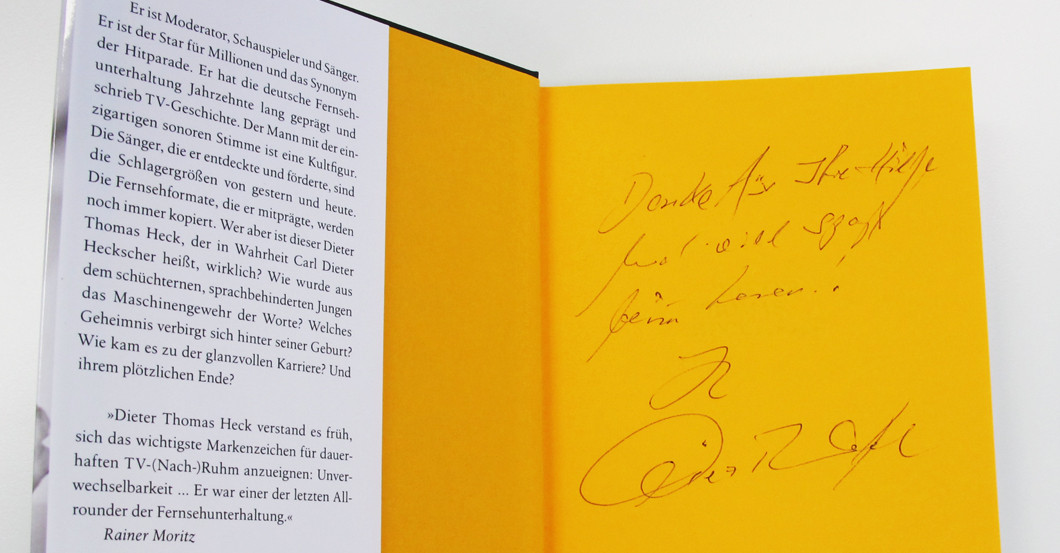 Er ist Moderator, Schauspieler und Sänger.
Er ist der Star für Millionen und das Synonym
der Hitparade. Er hat die deutsche Fernseh-
unterhaltung Jahrzehnte lang geprägt und
schrieb TV-Geschichte. Der Mann mit der ein-
zigartigen sonoren Stimme ist eine Kultfigur.
Die Sänger, die er entdeckte und förderte, sind
die Schlagergrößen von gestern und heute.
Die Fernsehformate, die er mitprägte, werden
noch immer kopiert. Wer aber ist dieser Dieter
Thomas Heck, der in Wahrheit Carl Dieter
Heckscher heißt, wirklich? Wie wurde aus
dem schüchternen, sprachbehinderten Jungen
das Maschinengewehr der Worte? Welches
Geheimnis verbirgt sich hinter seiner Geburt?
Wie kam es zu der glanzvollen Karriere? Und
ihrem plötzlichen Ende?
»Dieter Thomas Heck verstand es früh,
sich das wichtigste Markenzeichen für dauer-
haften TV-(Nach-)Ruhm anzueignen: Unver-
wechselbarkeit ... Er war einer der letzten All-
rounder der Fernsehunterhaltung.«
Rainer Moritz
Danke für Ihre Hilfe
und viel Spaß
beim Lesen..!